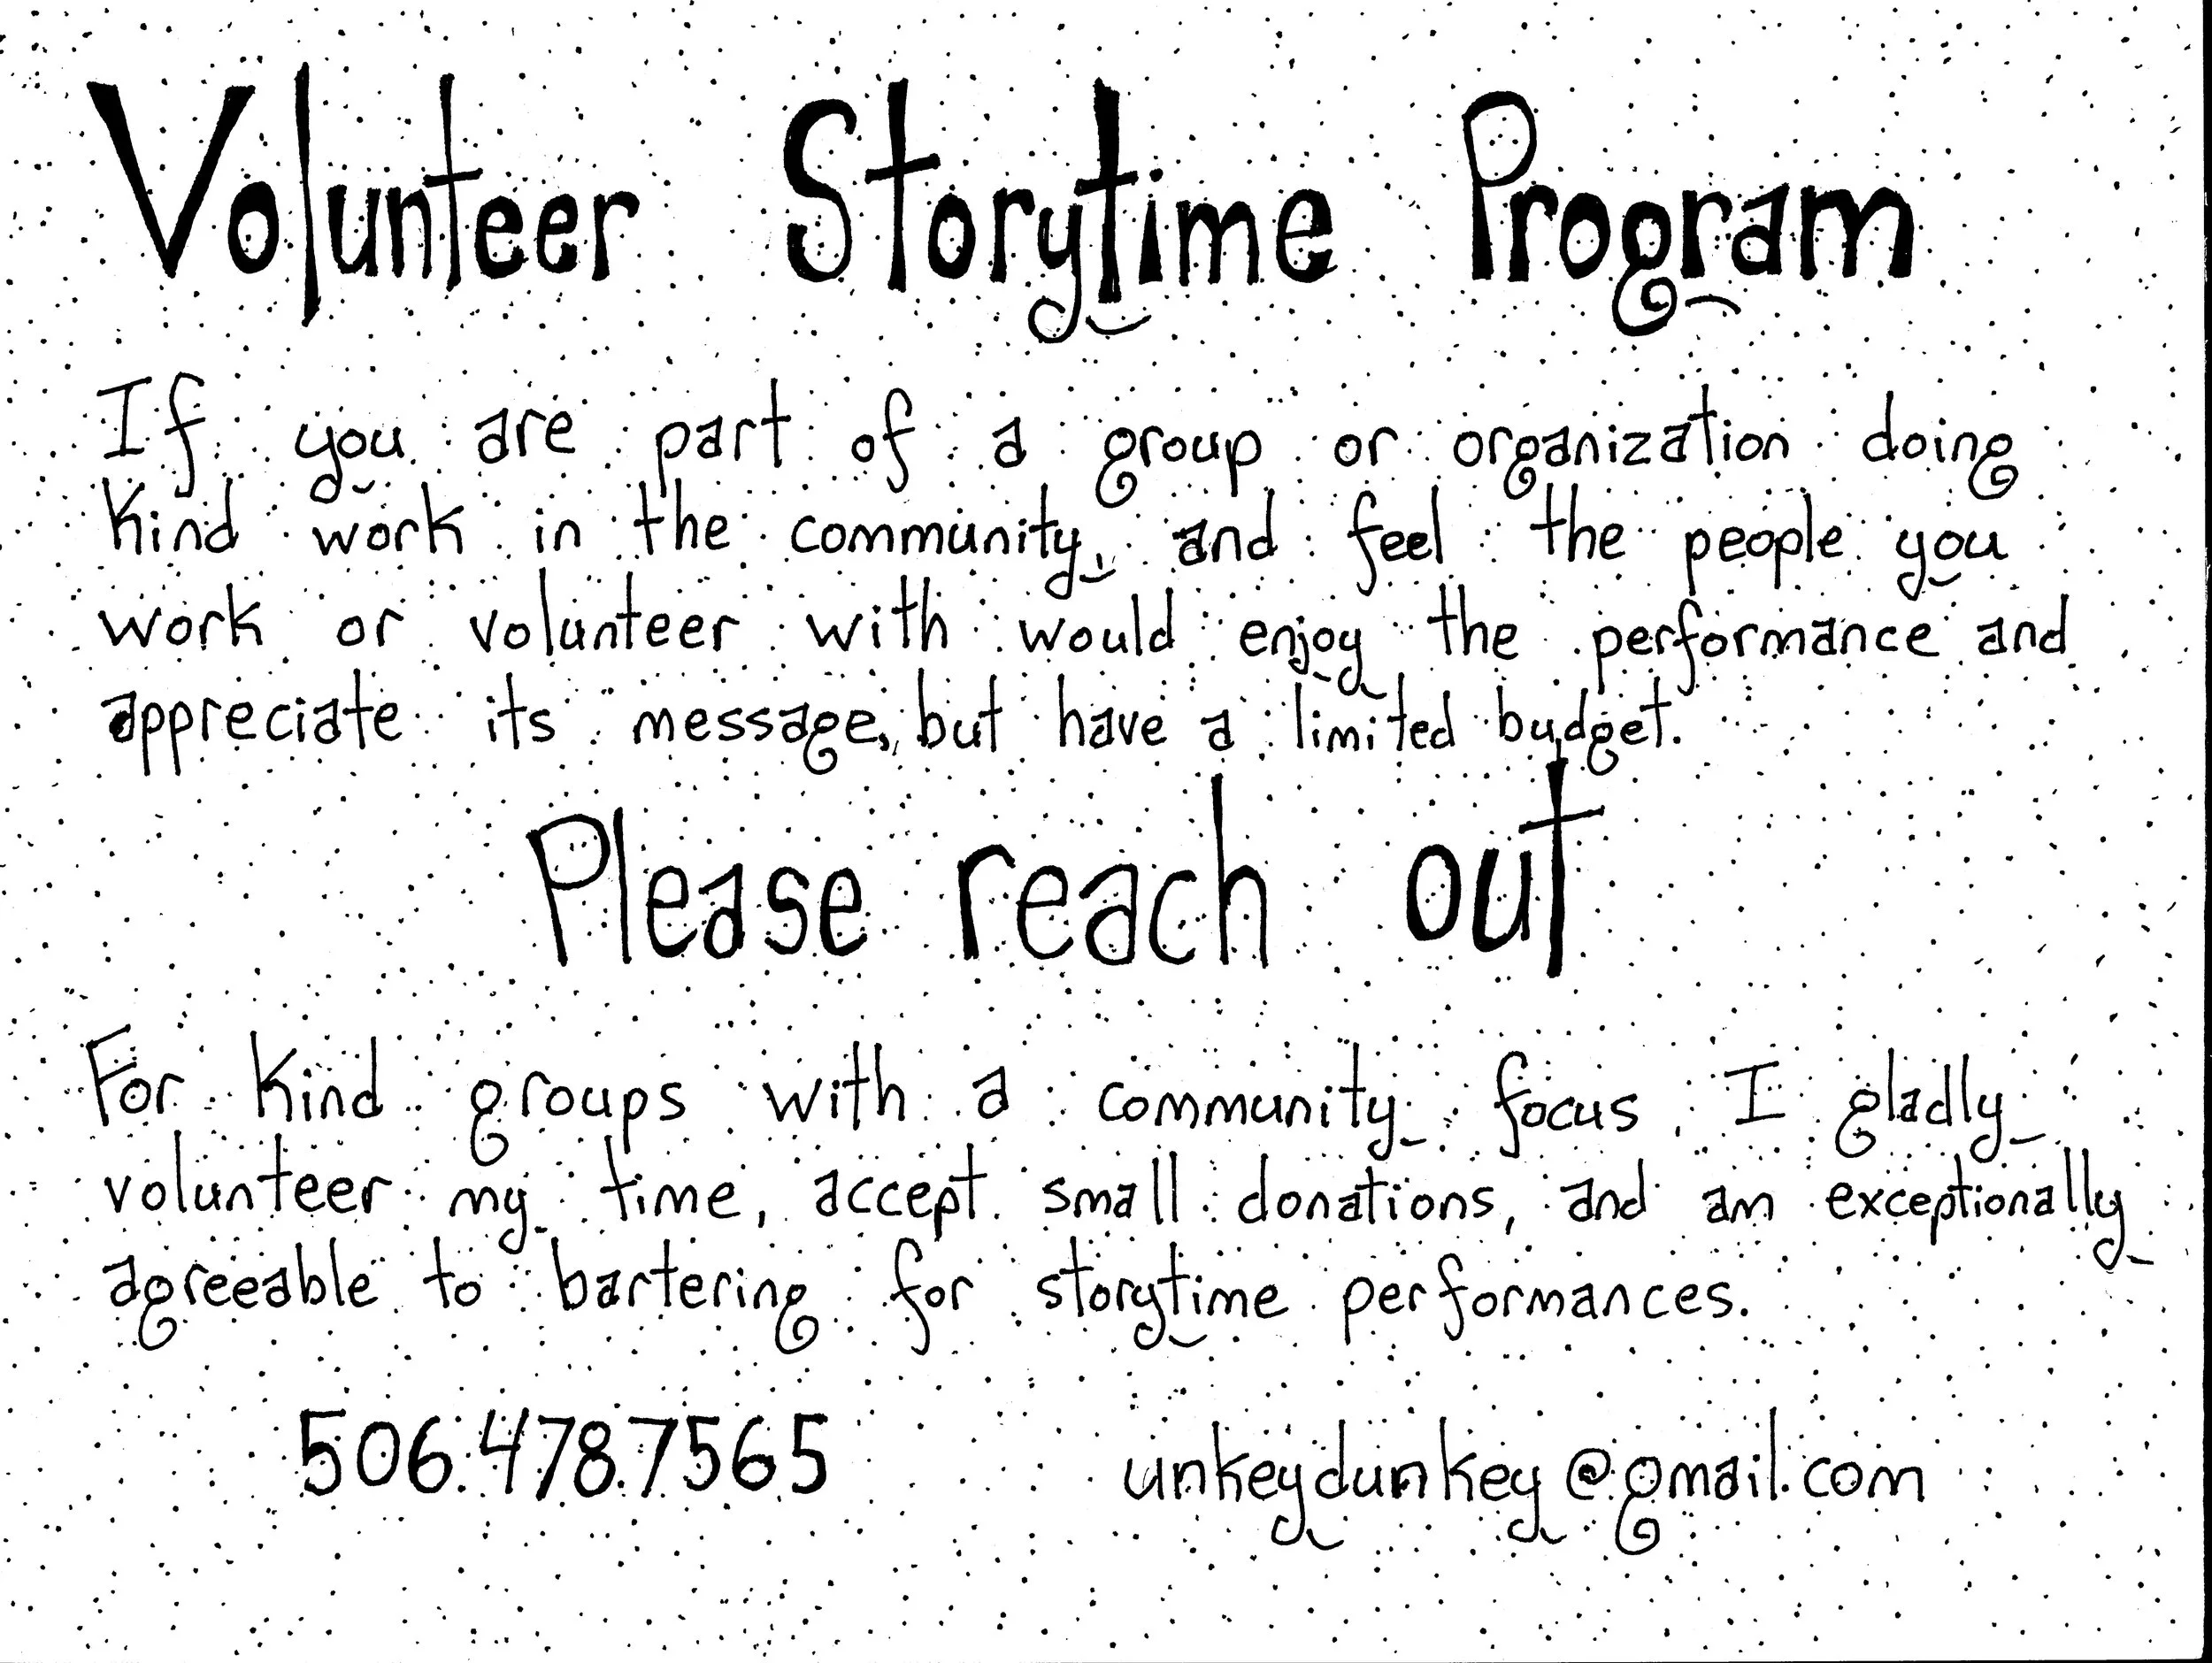 Volunteer Storytime Program
If you are part of a group or organization doing
kind work in the community, and feel the people you
work or volunteer with would enjoy the performance and
appreciate its message, but have a limited budget.
Please reach out
For kind groups with a community focus I gladly
volunteer my time, accept small donations, and am exceptionally
agreeable to bartering for storytime performances.
506.478.7565 unkeydunkey@gmail.com